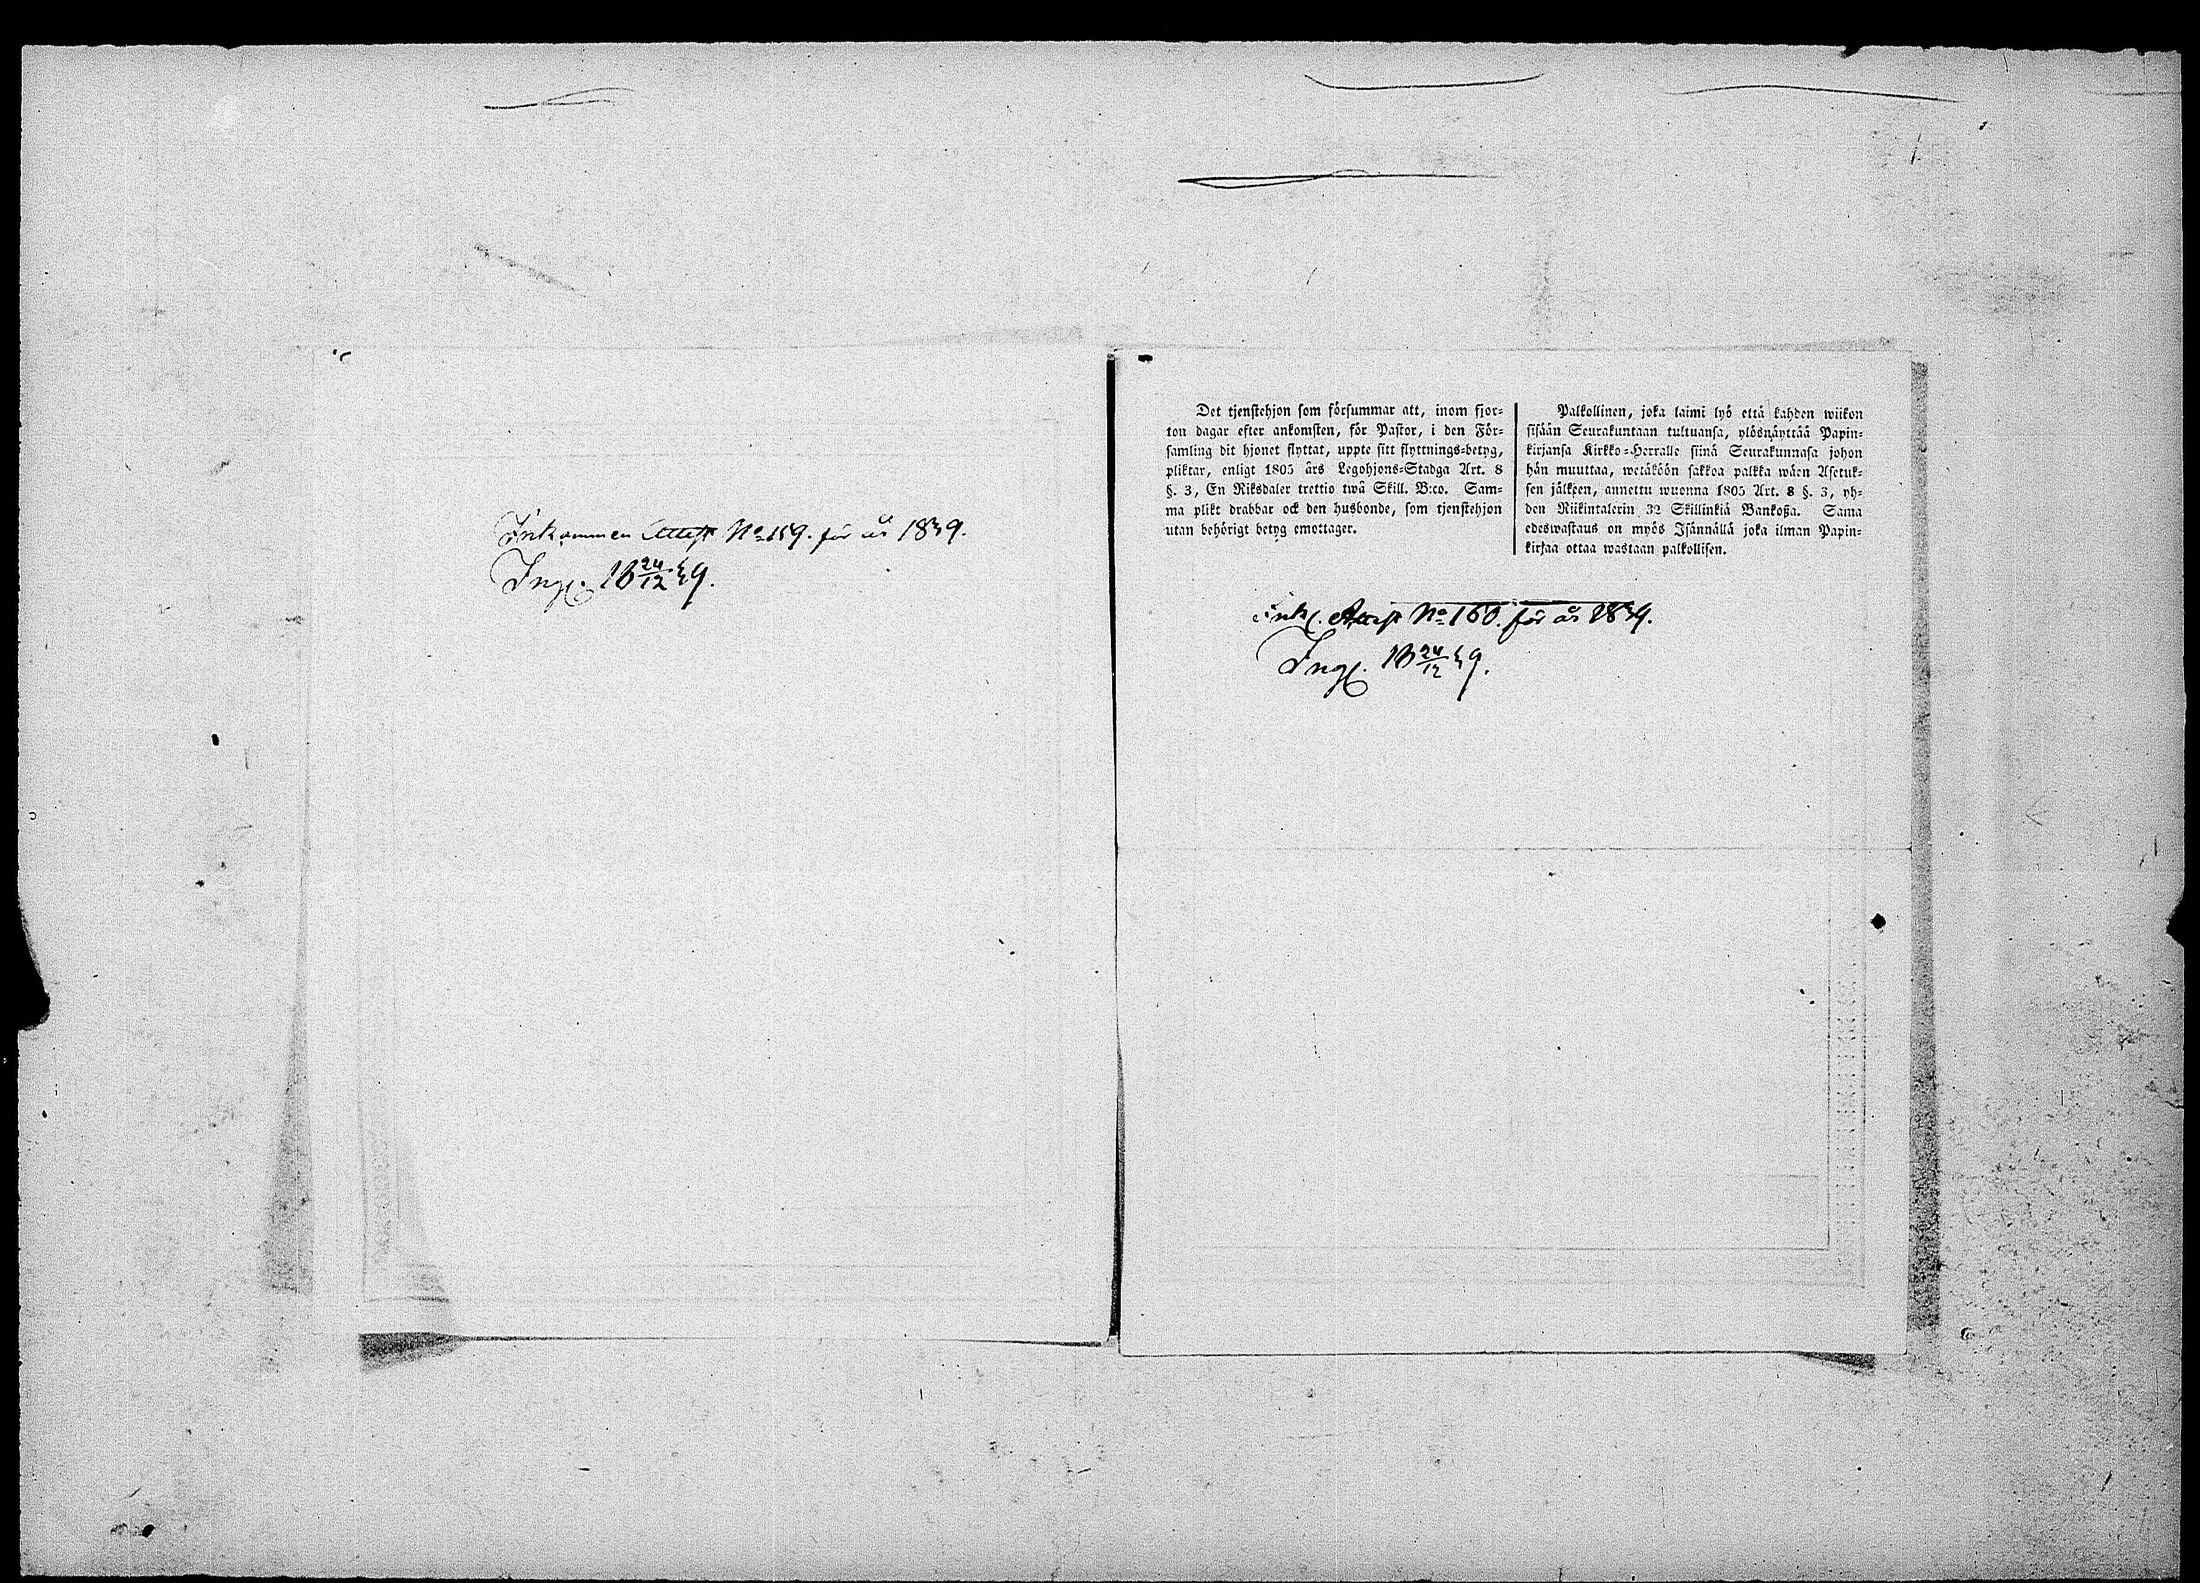 Inkommen Attest No 159. för år 1839.
Ingf. 18 24/12 39.
Det tjenstehjon som försummar att, inom fjor-
ton dagar efter ankomsten, för Pastor, i den För-
samling dit hjonet flyttat, uppte sitt flyttnings-betyg,
pliktar, enligt 1805 års Legohjons-Stadga Art. 8
§. 3, En Riksdaler trettio twå Skill. B:co. Sam-
ma plikt drabbar ock den husbonde, som tjenstehjon
utan behörigt betyg emottager.
Palkollinen, joka laimi lyö että kahden wiikon
sisään Seurakuntaan tultuansa, ylösnäyttää Papin-
kirjansa Kirkko-Herralle siinä Seurakunnasa johon
hän muuttaa, wetäköön sakkoa palkka wäen Asetuk-
sen jälkeen, annettu wuonna 1805 Art. 8 §. 3, yh-
den Riikintalerin 32 Skillinkiä Bankoßa. Sama
edeswastaus on myös Isännällä joka ilman Papin-
kirjaa ottaa wastaan palkollisen.
Ink. Attest No 160. för år 1839.
Ingf. 18 24/12 39.